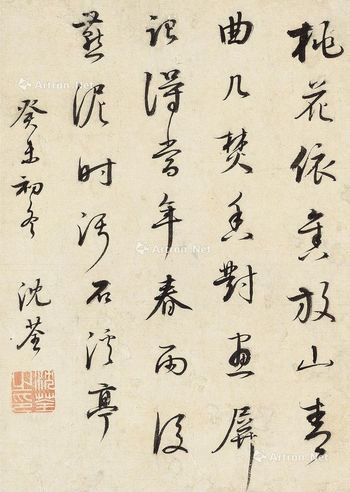 桃花依舊放山青
曲几焚香對畫屏
記得當年春雨後
燕泥時污石溪亭
癸未初冬 沈荃
沈荃之印
Artron.Net
Artron.Net
Artron.Net